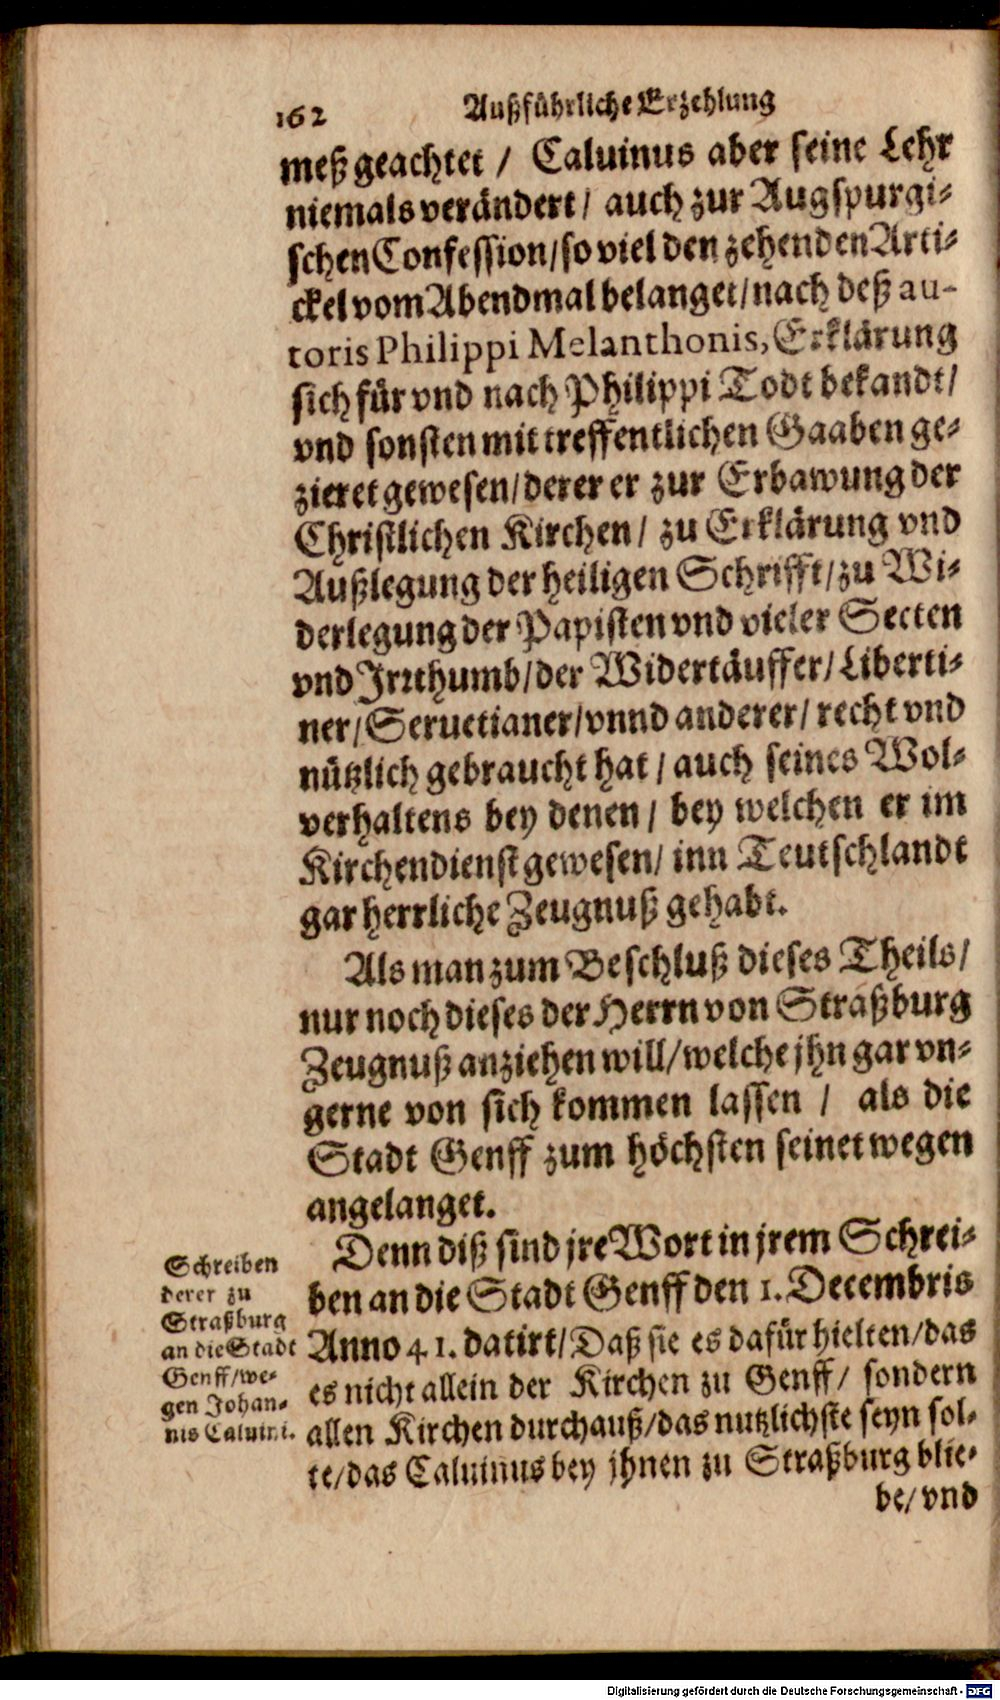 162 Außführliche Erzehlung
meß geachtet / Caluinus aber seine Lehr
niemals verändert / auch zur Augspurgi-
schen Confession/so viel den zehenden Arti-
ckel vom Abendmal belanget/nach deß au-
toris Philippi Melanthonis, Erklärung
sich für vnd nach Philippi Todt bekandt/
vnd sonsten mit treffentlichen Gaaben ge-
zieret gewesen/derer er zur Erbawung der
Christlichen Kirchen / zu Erklärung vnd
Außlegung der heiligen Schrifft/zu Wi-
derlegung der Papisten vnd vieler Secten
vnd Irrthumb/der Widertäuffer/Liberti-
ner/Seruetianer/vnnd anderer/ recht vnd
nützlich gebraucht hat / auch seines Wol-
verhaltens bey denen / bey welchen er im
Kirchendienst gewesen/ inn Teutschlandt
gar herrliche Zeugnuß gehabt.
Als man zum Beschluß dieses Theils/
nur noch dieses der Herrn von Straßburg
Zeugnuß anziehen will/welche jhn gar vn-
gerne von sich kommen lassen / als die
Stadt Genff zum höchsten seinetwegen
angelanget.
Denn diß sind jre Wort in jrem Schrei-
ben an die Stadt Genff den 1. Decembris
Anno 41. datirt/Daß sie es dafür hielten/das
es nicht allein der Kirchen zu Genff/ sondern
allen Kirchen durchauß/das nutzlichste seyn sol-
te/das Caluinus bey jhnen zu Straßburg blie-
be/ vnd
Schreiben
derer zu
Straßburg
an die Stadt
Genff/we-
gen Johan-
nis Caluini.
Digitalisierung gefördert durch die Deutsche Forschungsgemeinschaft - DFG